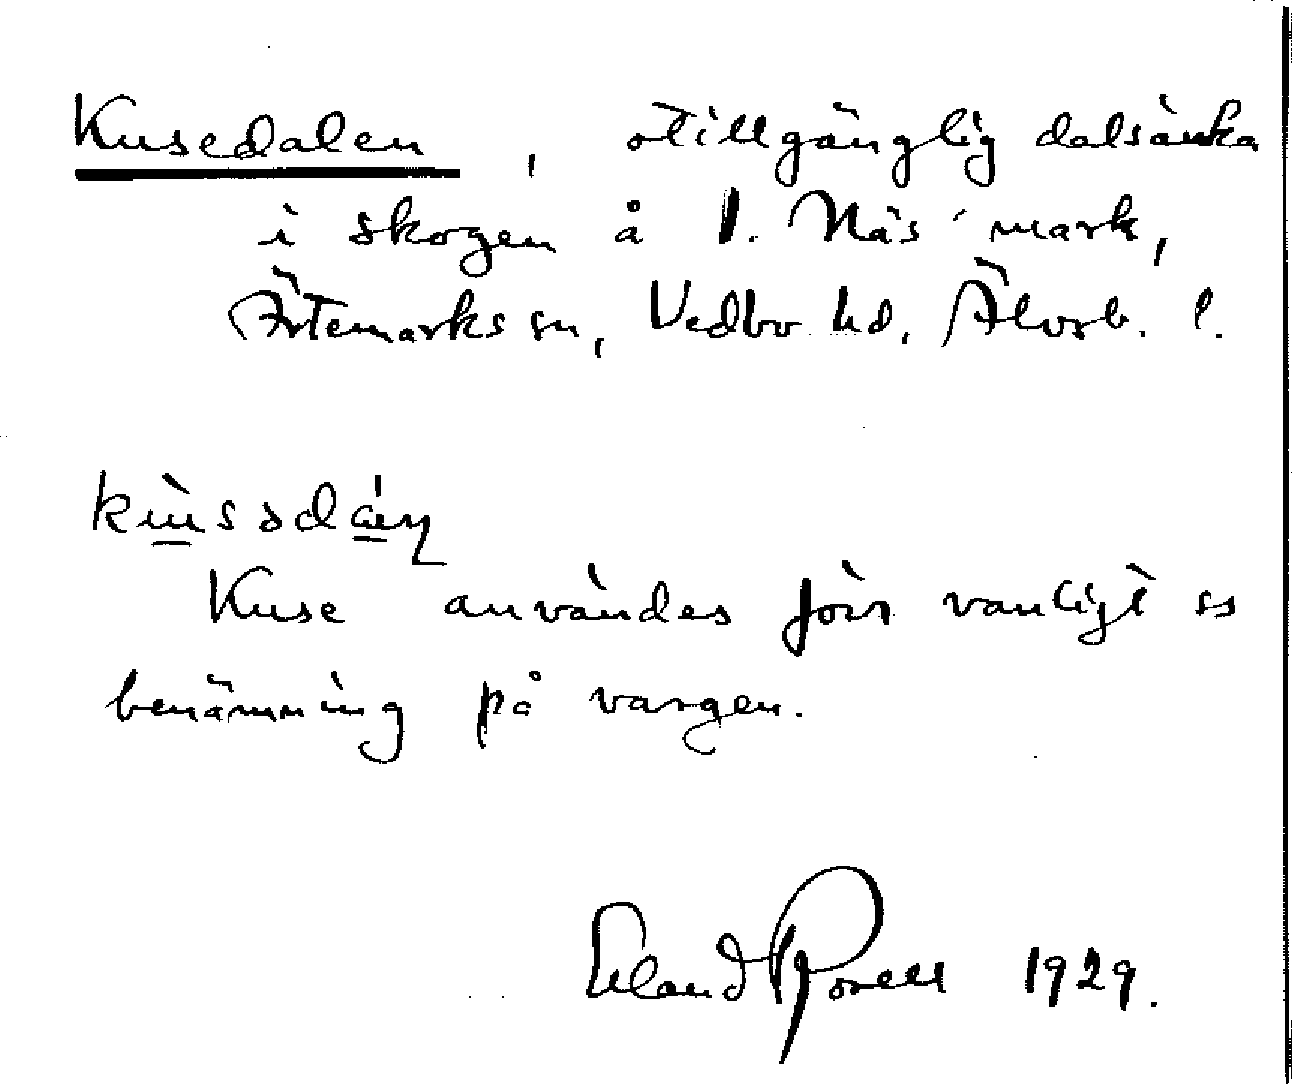 Kusedalen, otillgänglig dalsänka
i skogen å 1. Näs' mark,
Ärtemarks sn, Vedbo hd, Älvsb. l.
Kuse användes förr vanligt ss
benämning på vargen.
Erland Rosell 1929.